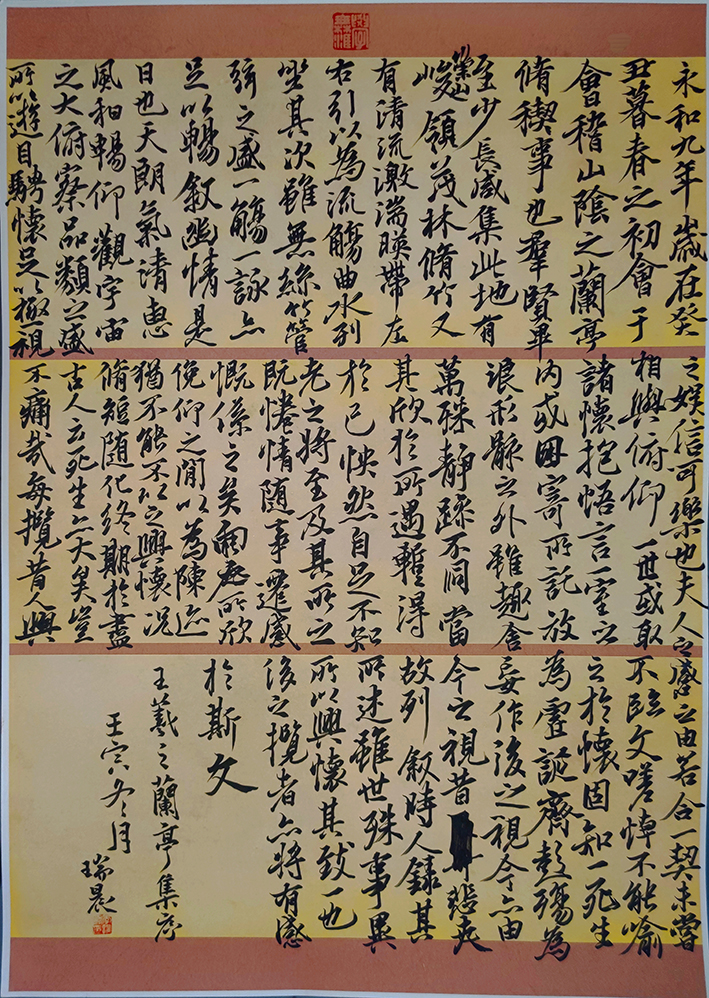 永和九年歲在癸
丑暮春之初會于
會稽山陰之蘭亭
脩稧事也羣賢畢
至少長咸集此地有
崇山峻領茂林脩竹又
有清流激湍暎帶左
右引以為流觴曲水列
坐其次雖無絲竹管
弦之盛一觴一詠亦
足以暢敘幽情是
日也天朗氣清惠
風和暢仰觀宇宙
之大俯察品類之盛
所以遊目騁懷足以極視
之娱信可樂也夫人之
相與俯仰一世或取
諸懷抱悟言一室之
内或因寄所託放
浪形骸之外雖趣舍
萬殊靜躁不同當
其欣於所遇蹔得
於己怏然自足不知
老之將至及其所之
既惓情隨事遷感
慨係之矣向之所欣
俛仰之閒以為陳迹
猶不能不以之興懷況
脩短隨化終期於盡
古人云死生亦大矣豈
不痛哉每攬昔人興
感之由若合一契未嘗
不臨文嗟悼不能喻
之於懷固知一死生
為虛誕齊彭殤為
妄作後之視今亦由
今之視昔悲夫
故列敘時人錄其
所述雖世殊事異
所以興懷其致一也
後之攬者亦將有感
於斯文
王羲之蘭亭集序
壬寅冬月
瑞晨